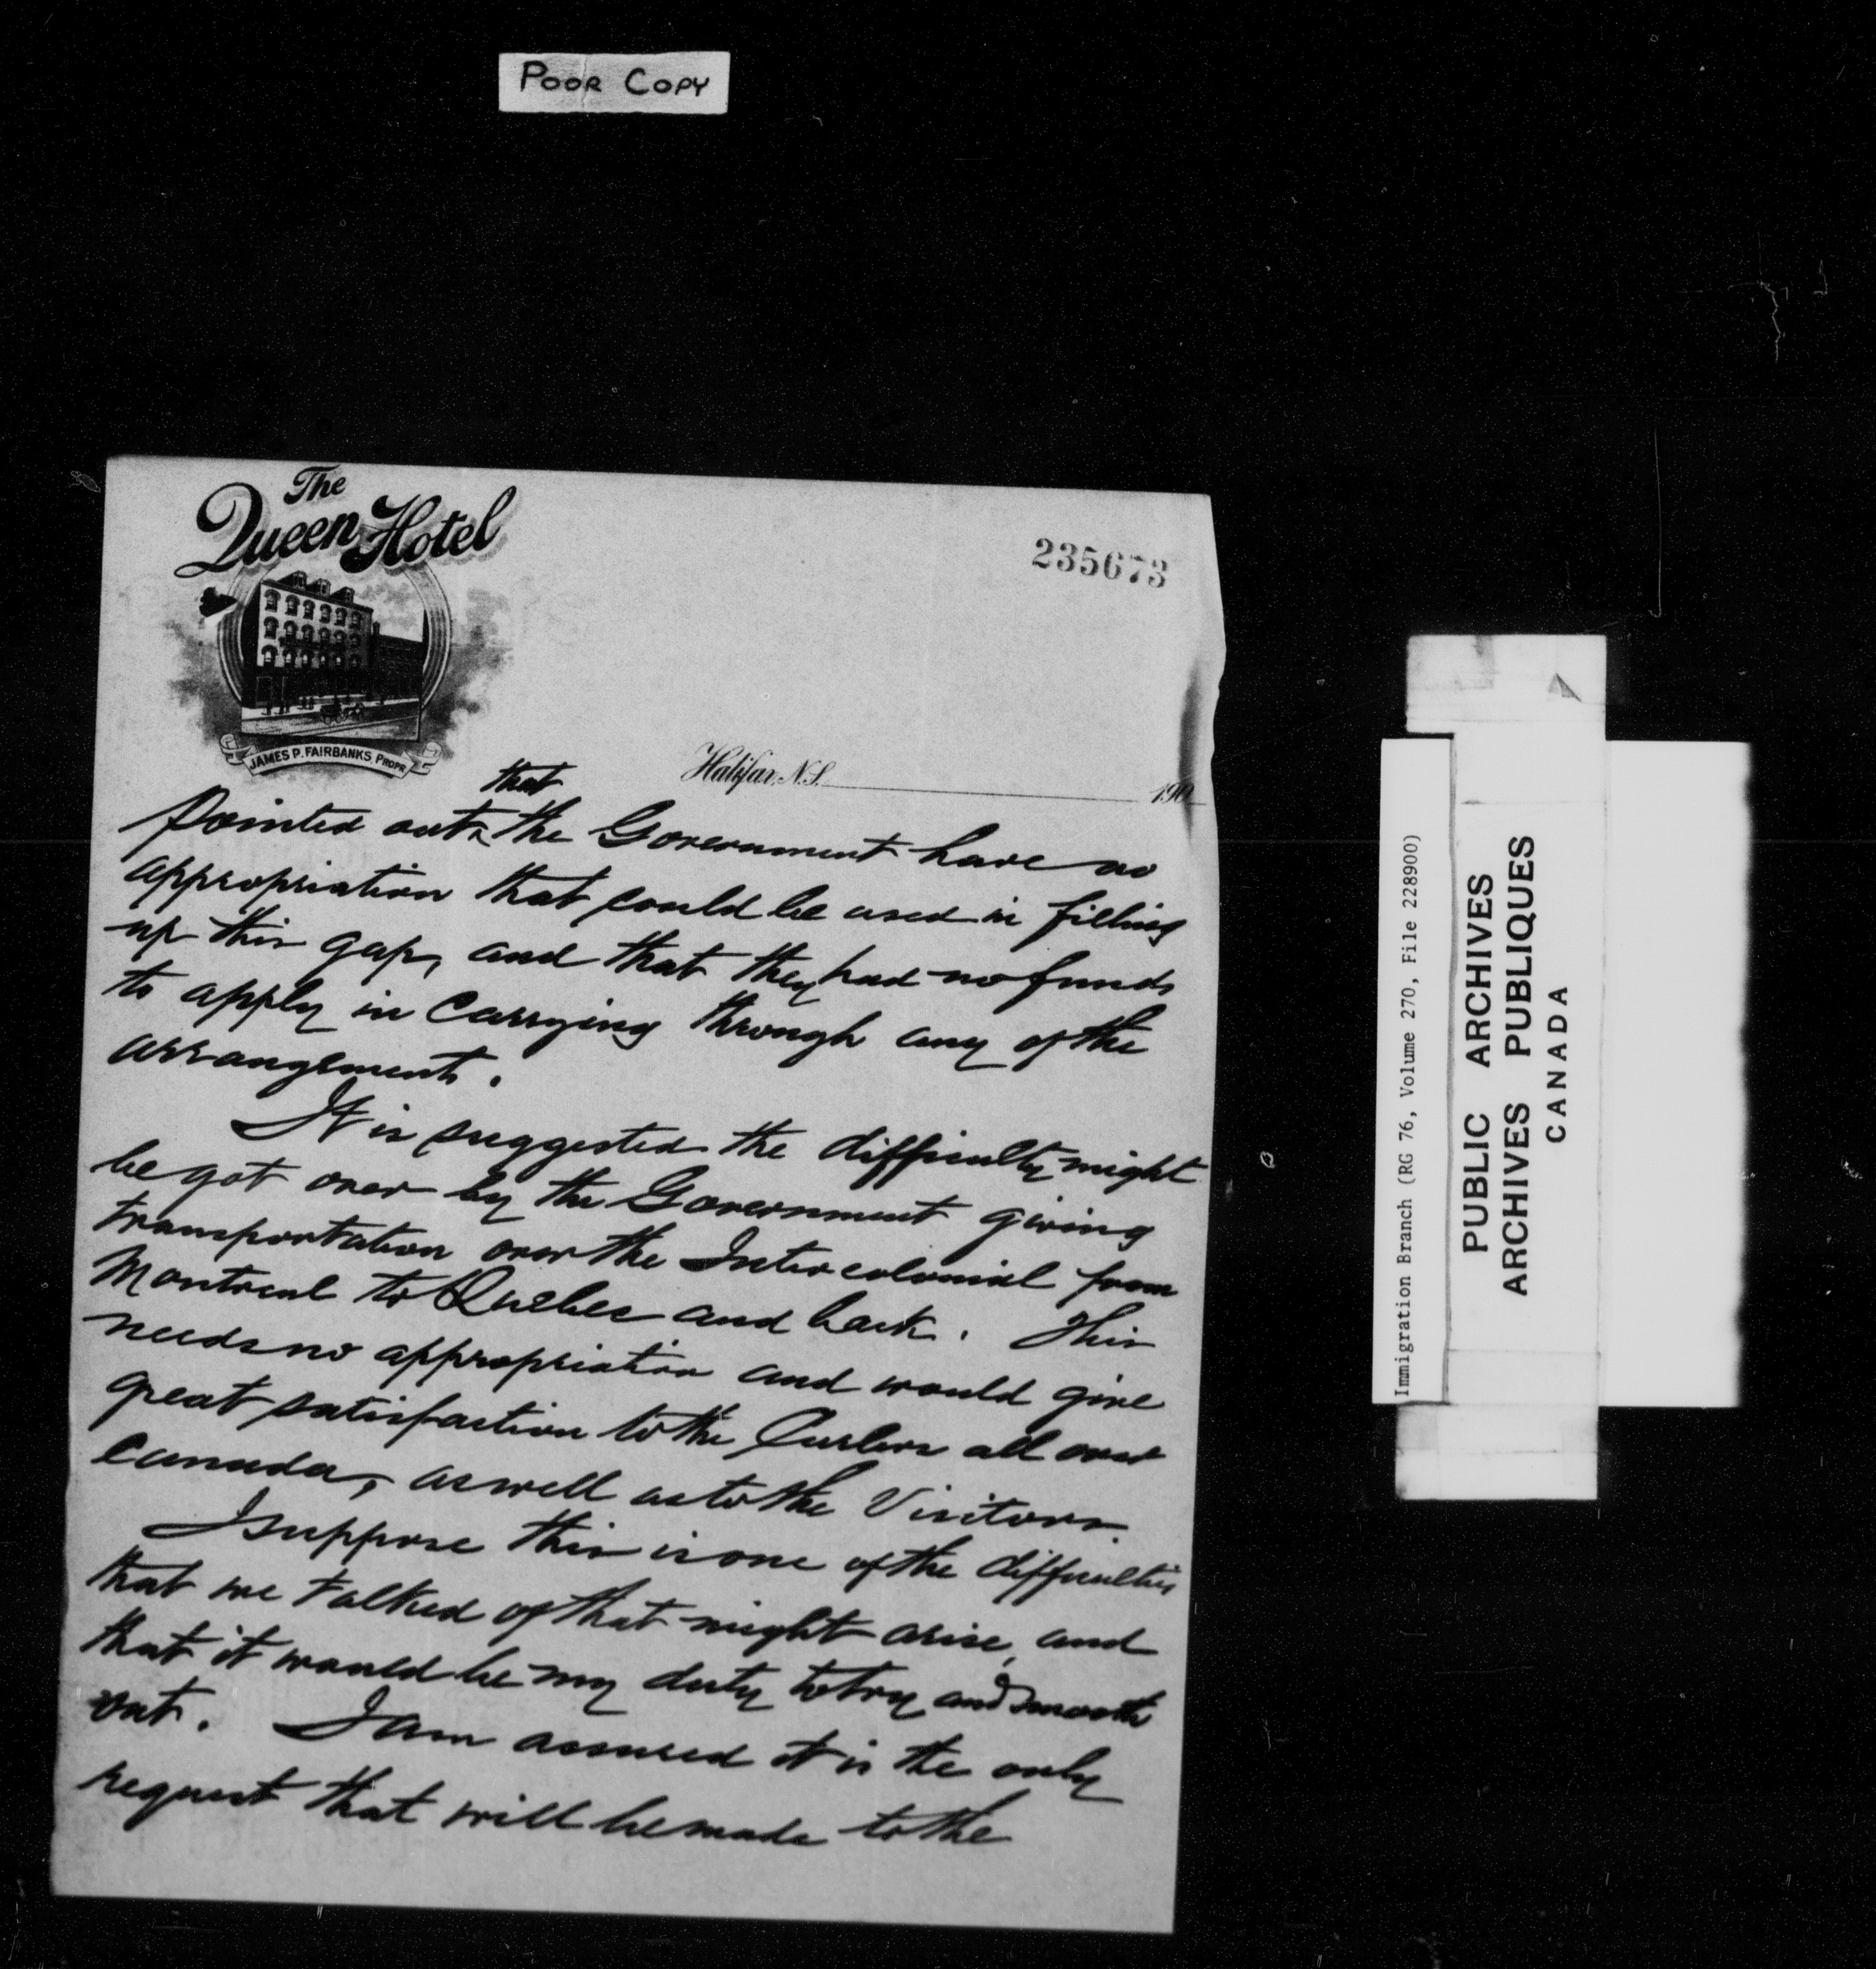 POOR COPY
The
Queen Hotel
235673
JAMES P. FAIRBANKS, PROPR
Halifax, N.S. 190
that
pointed out ^ the Government have no
appropriation that could be used in filling
up this gap, and that they had no funds
to apply in carrying through any of the
arrangements.
It is suggested the difficulty might
be got over by the Government giving
transportation over the Intercolonial from
Montreal to Quebec and back. This
needs no appropriation and would give
great satisfaction to the Curlers all over
Canada, as well as to the Visitors.
I suppose this is one of the difficulties
that we talked of that might arise, and
that it would be my duty to try and smooth
out. I am assured it is the only
request that will be made to the
Immigration Branch (RG 76, Volume 270, File 228900)
PUBLIC ARCHIVES
ARCHIVES PUBLIQUES
CANADA